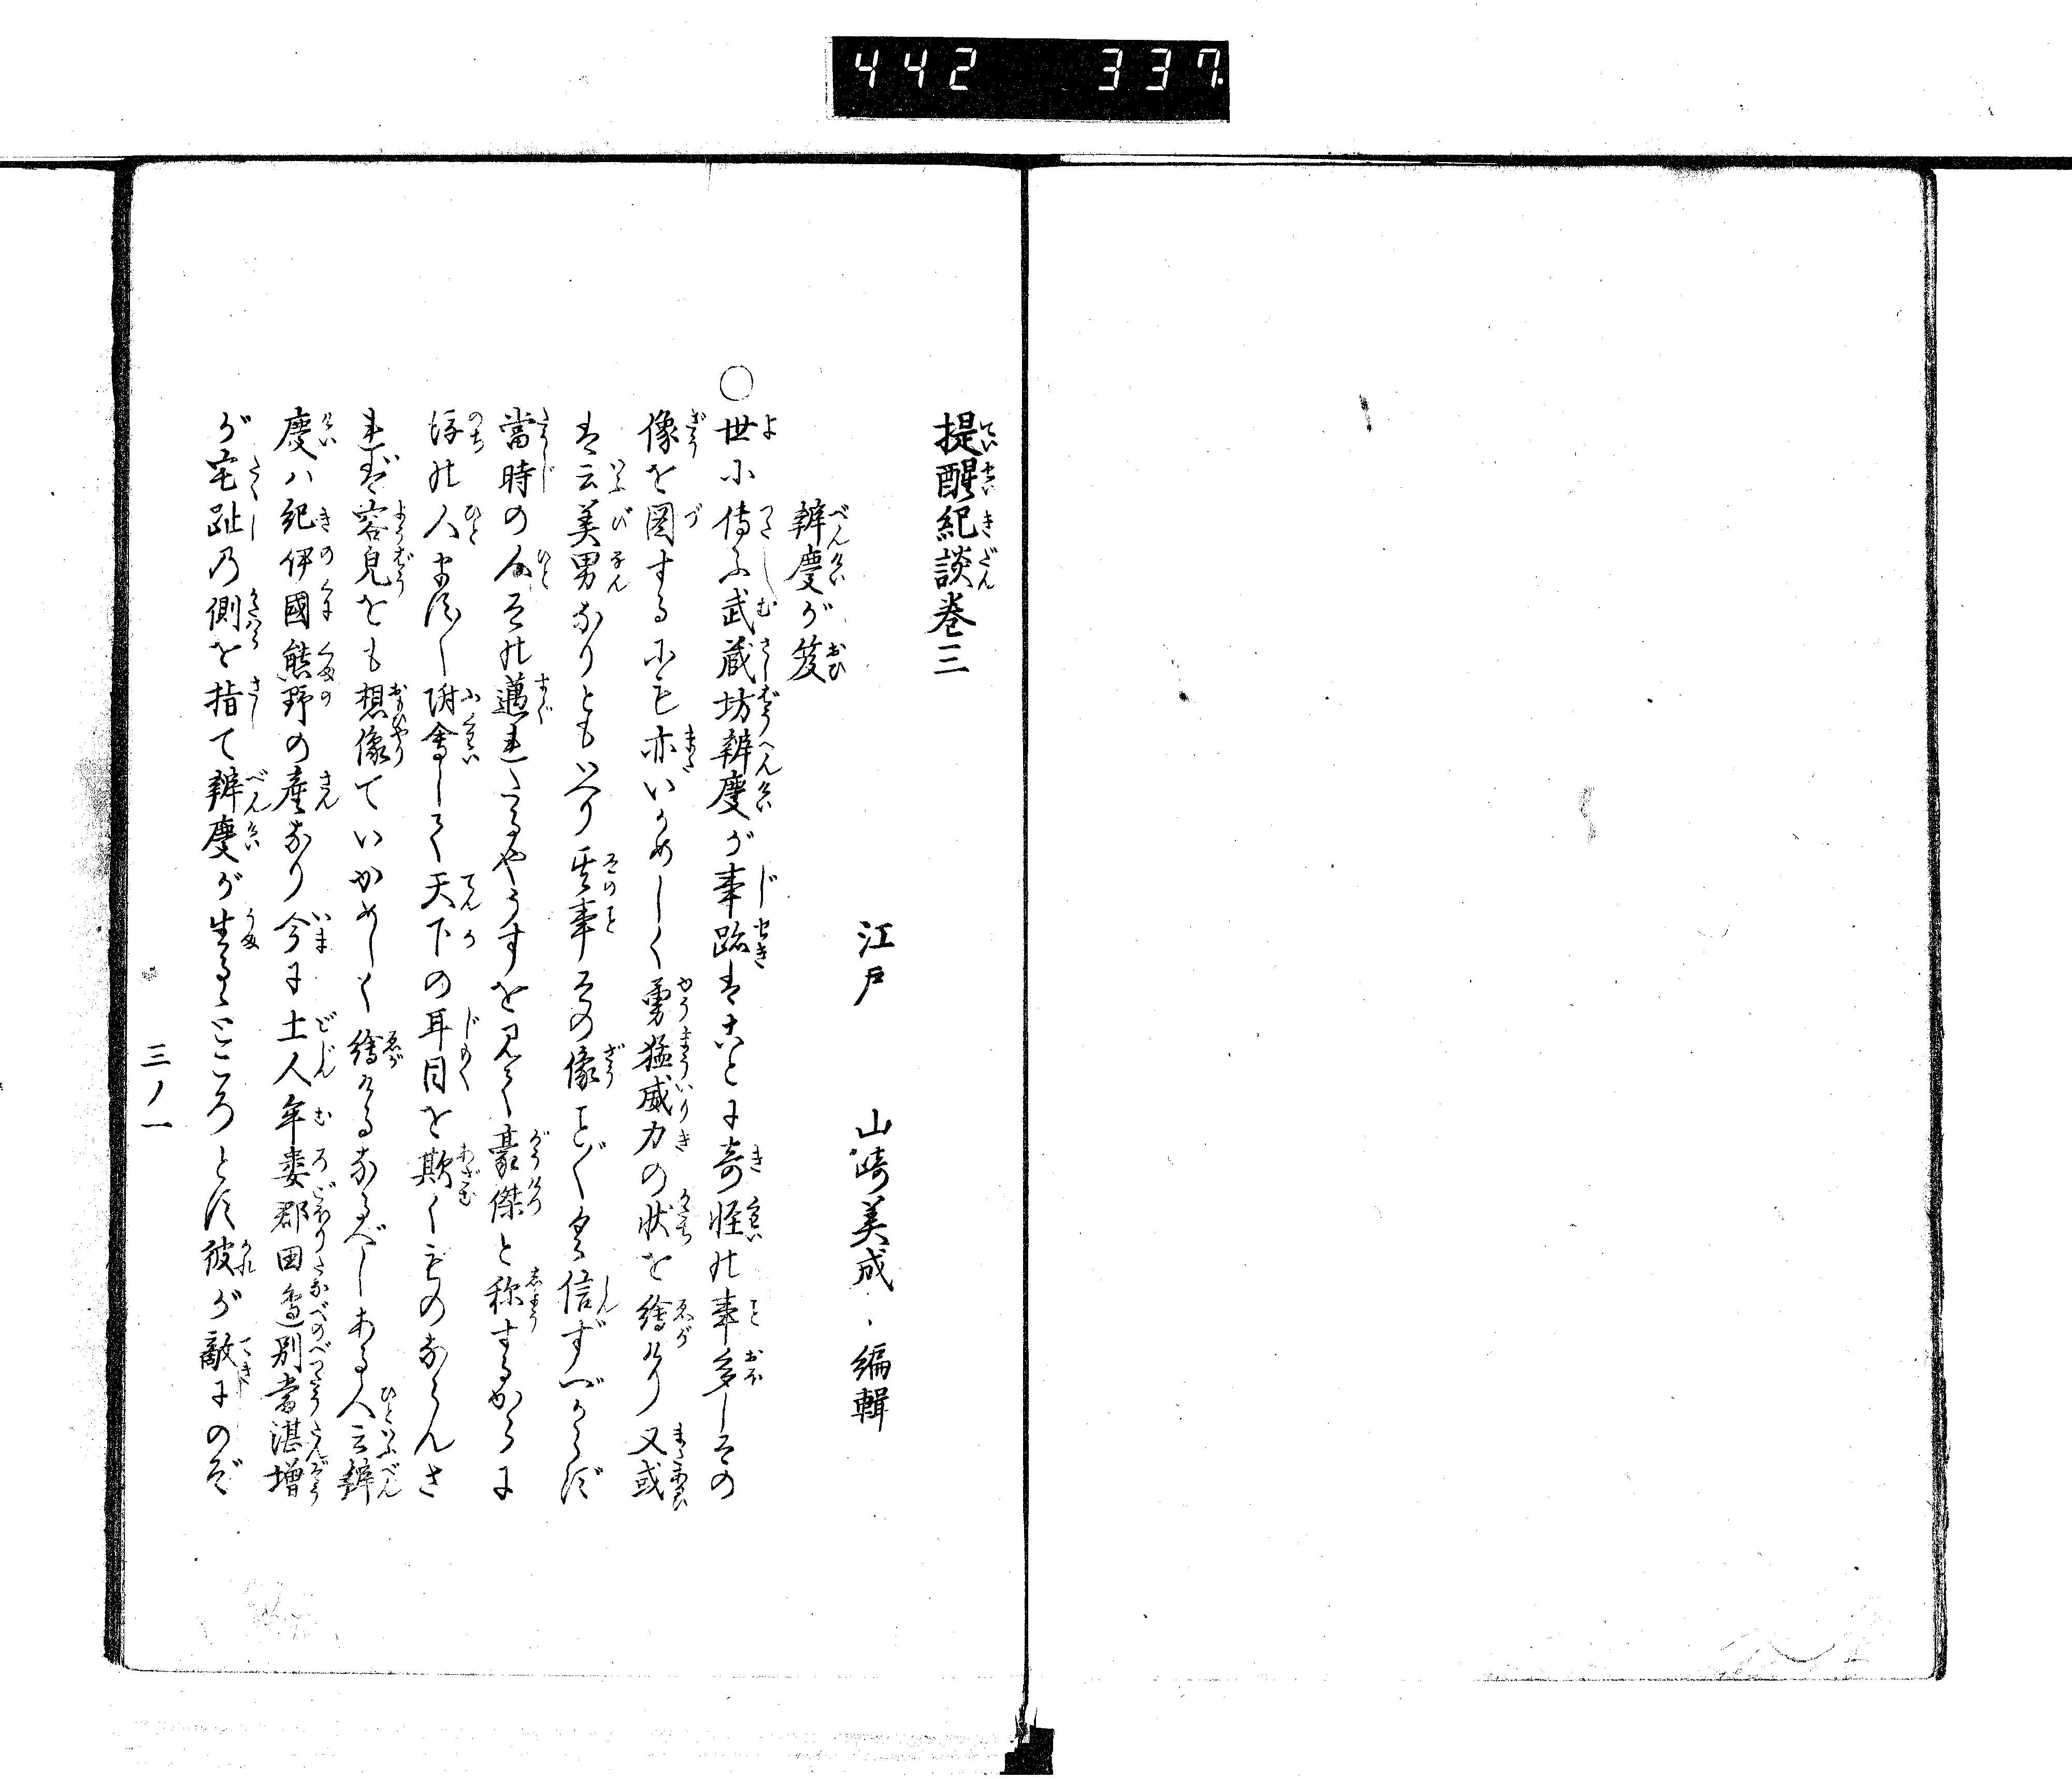 442 337.
提醒紀談巻三
江戸 山崎美成 編輯
辨慶が笈
○世に傳ふ武蔵坊辨慶が事跡はことに奇怪の事多しその
像を図するにも亦いかめしく勇猛威力の状を繪けり又或
は云美男なりともいへり其事その像ことごとく信ずべからず
當時の人その邁れたるやうすを見て豪傑と称するからに
後の人ますます附會して天下の耳目を欺くものならんさ
れば容皃をも想像ていかめしく繪けるなるべしある人云辨
慶ハ紀伊國熊野の産なり今に土人牟婁郡田邉別當湛増
が宅趾乃側を指て辨慶が生るゝところとす彼が敵にのぞ
三ノ一